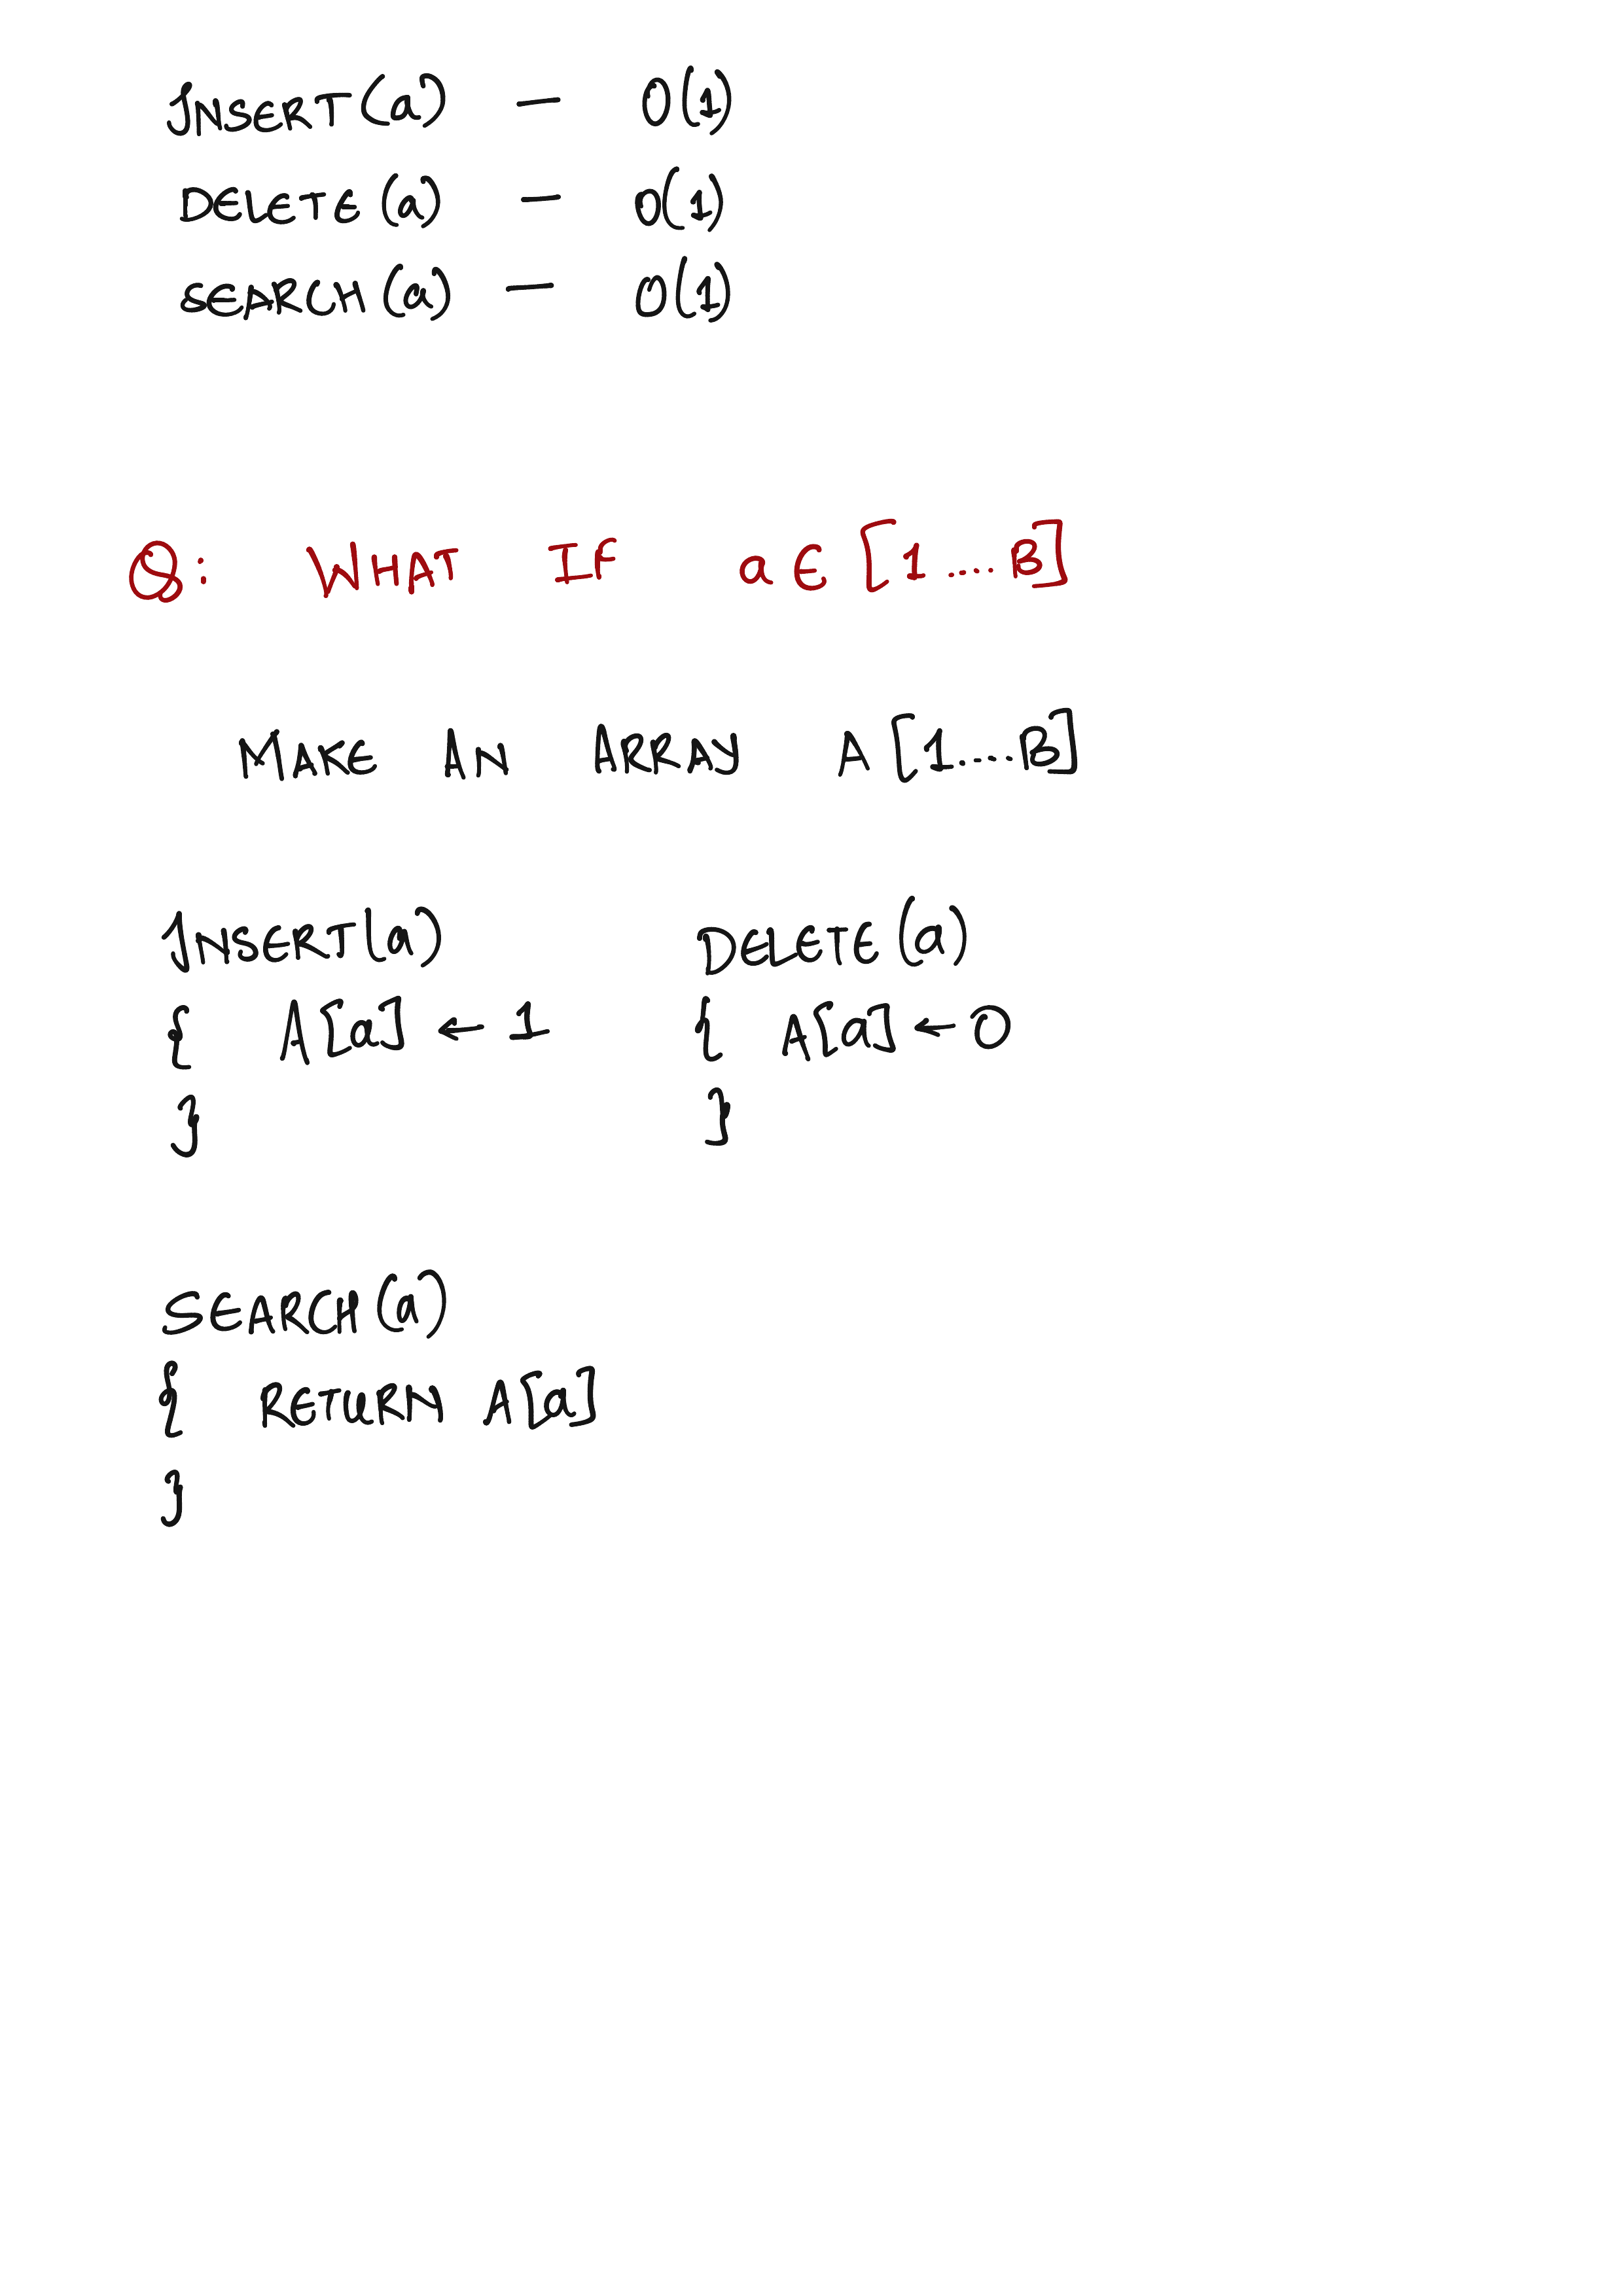 INSERT(a) — O(1)
DELETE(a) — O(1)
SEARCH(a) — O(1)
Q: WHAT IF a ∈ [1....B]
MAKE AN ARRAY A[1....B]
INSERT(a) DELETE(a)
{ A[a] ← 1 { A[a] ← 0
} }
SEARCH(a)
{ RETURN A[a]
}